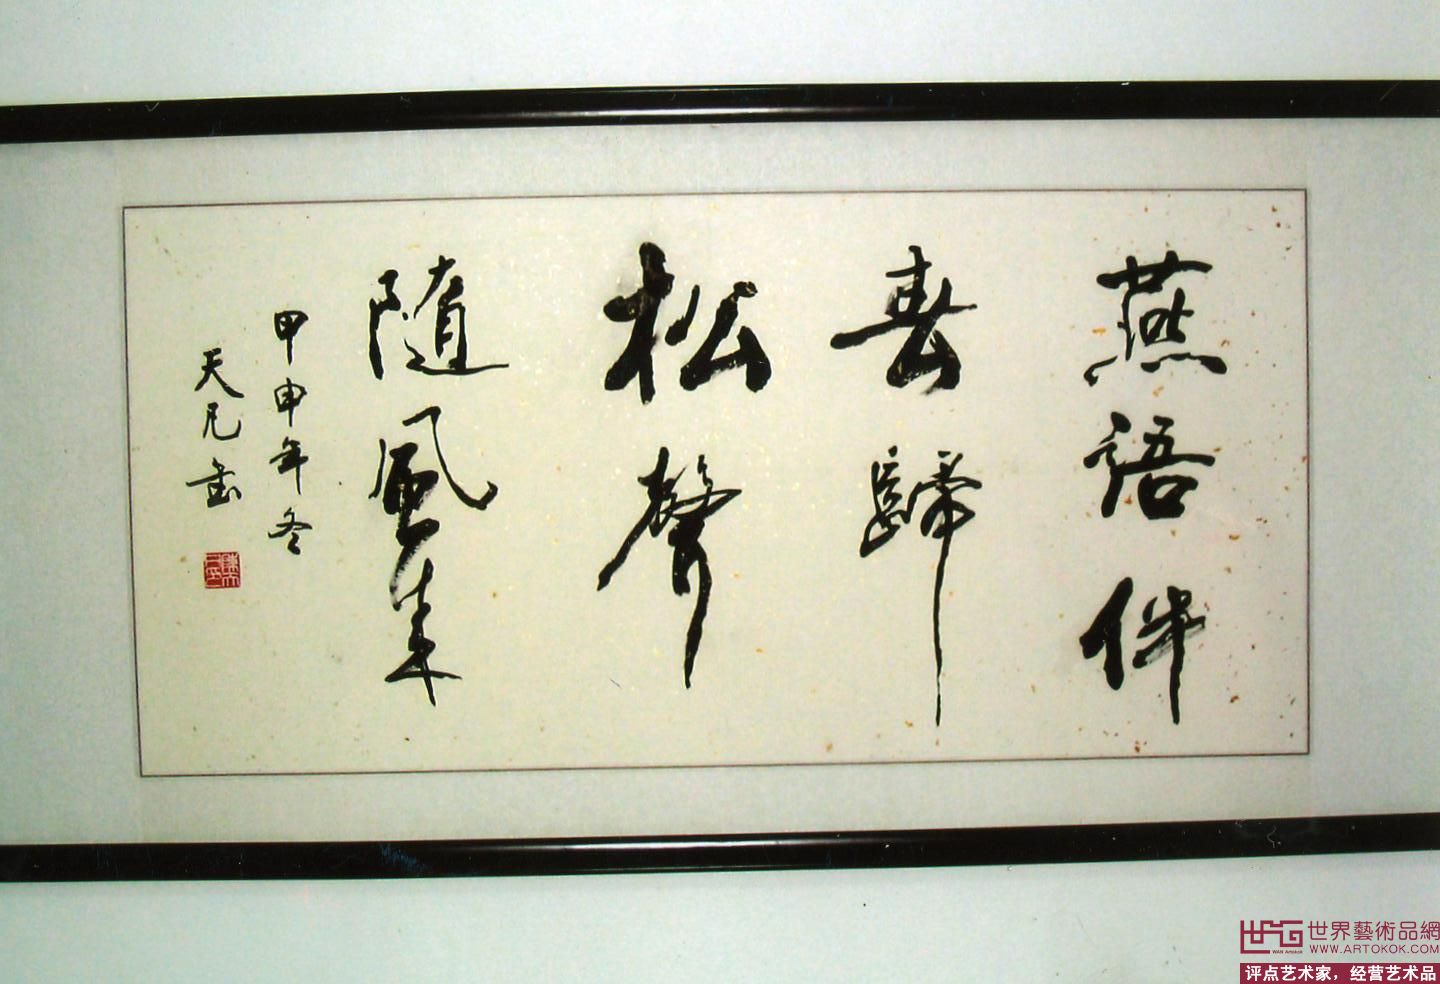 燕語伴
春歸
松聲
隨風來
甲申年冬
天凡書
世界藝術品網
WWW.ARTOKOK.COM
评点艺术家，经营艺术品